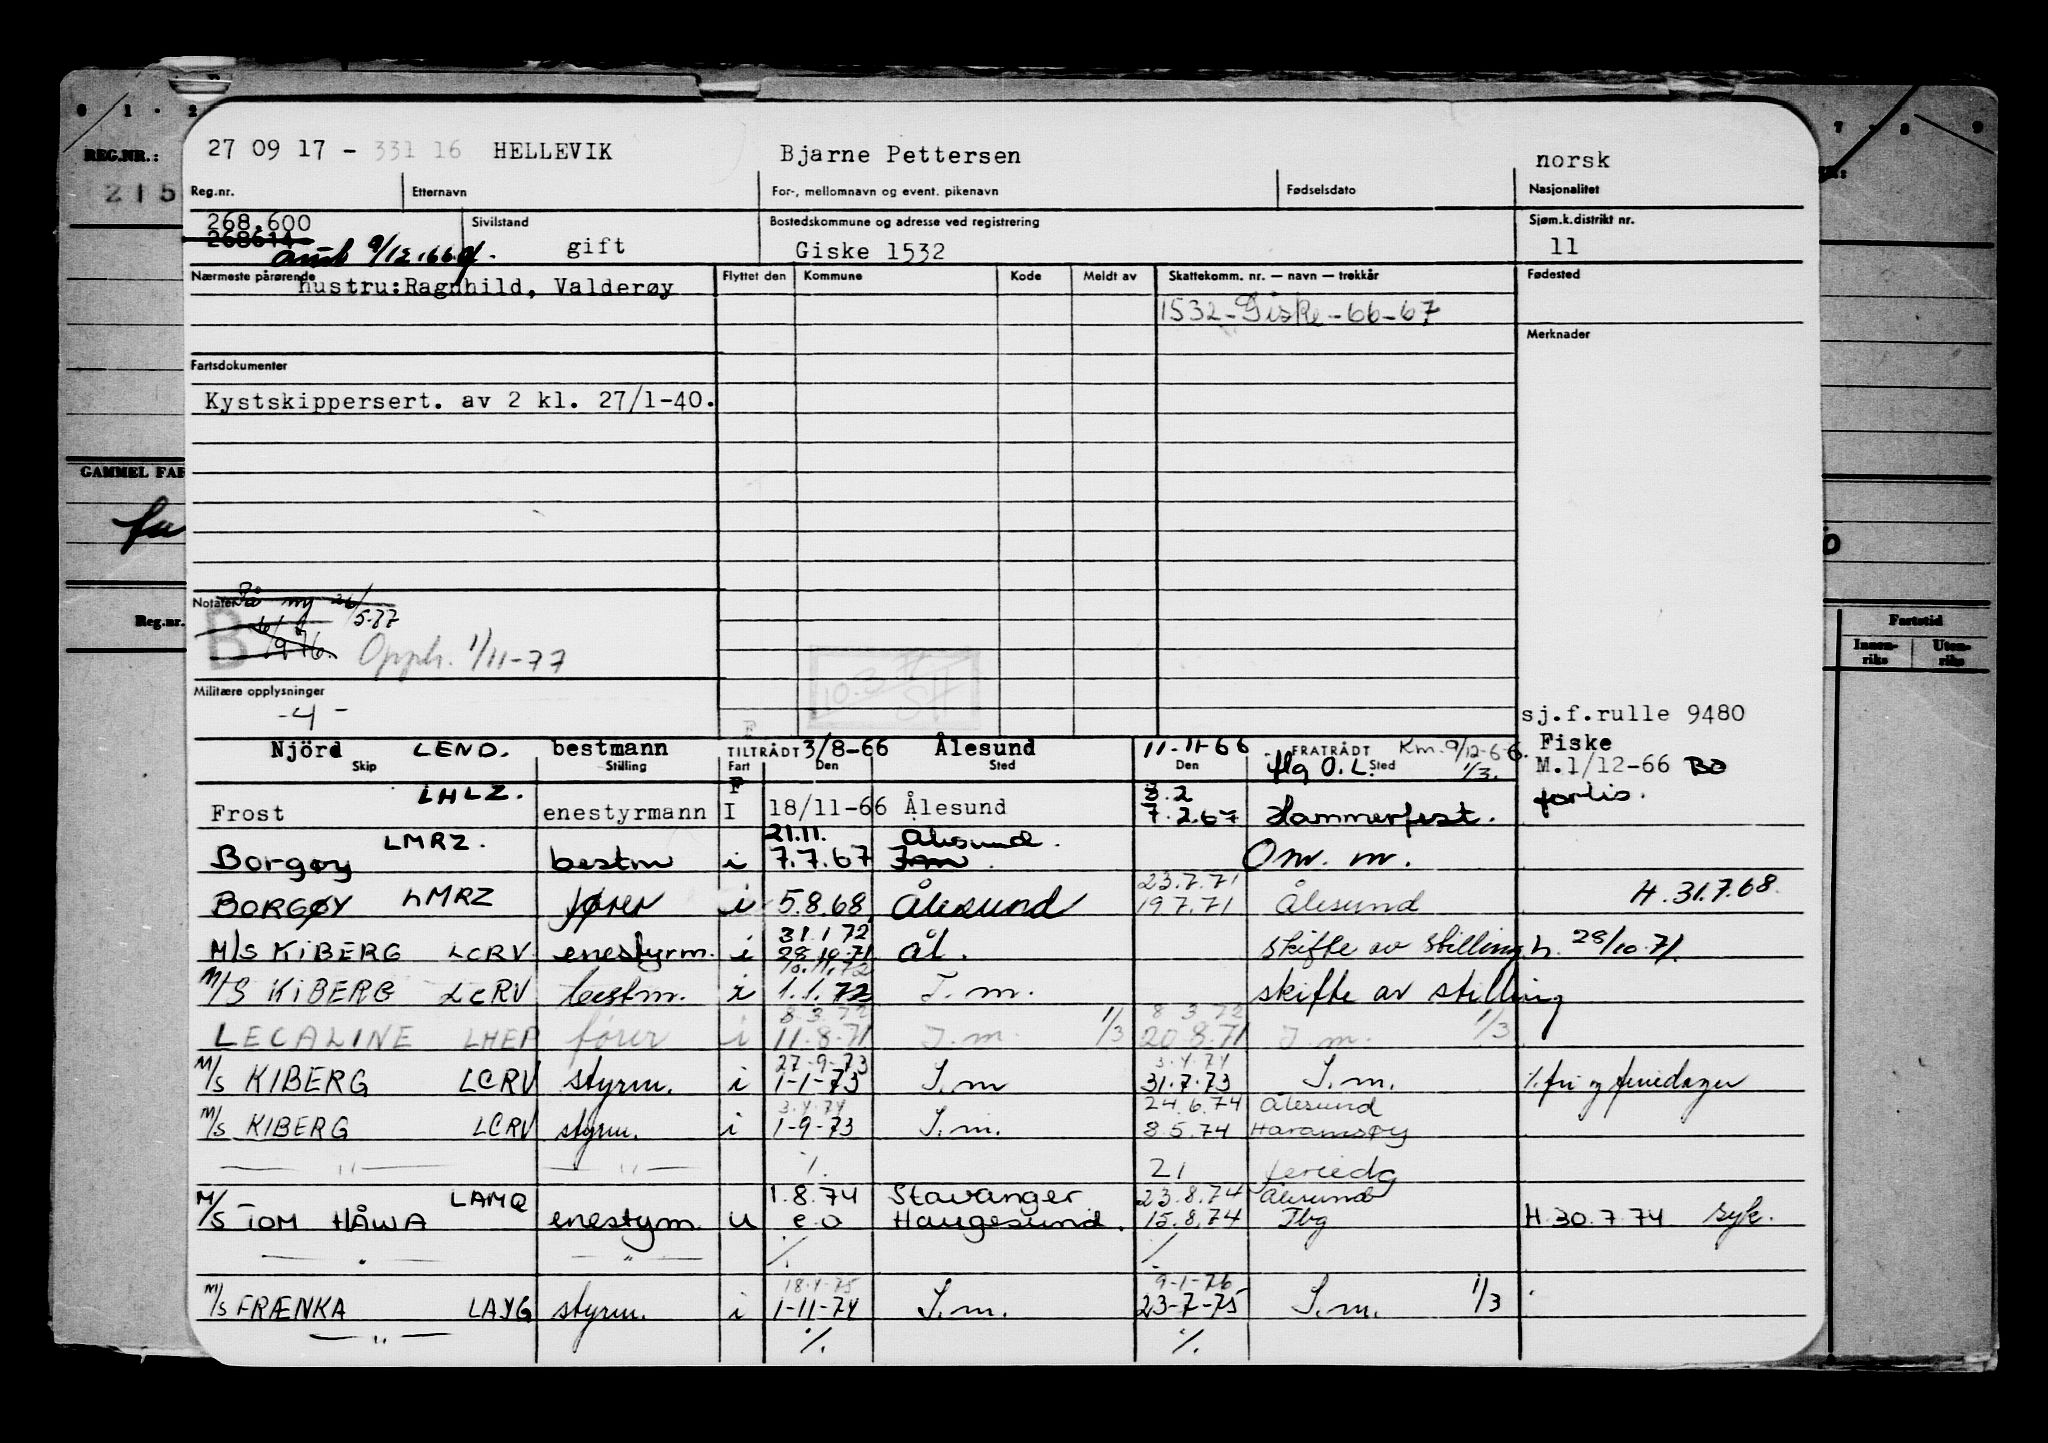 0 1 · 2
7 · 8 9
REG.NR.:
215
GAMMEL FAR
Reg.nr.
Fartstid
Innen-riks Uten-riks
27 09 17 - 331 16 HELLEVIK Bjarne Pettersen norsk
Reg.nr. Etternavn For-, mellomnavn og event. pikenavn Fødselsdato Nasjonalitet
268.600 Sivilstand Bostedskommune og adresse ved registrering Sjøm.k.distrikt nr.
268614
9/12.66 gift Giske 1532 11
Nærmeste pårørende Flyttet den Kommune Kode Meldt av Skattekomm. nr. — navn — trekkår Fødested
hustru:Ragnhild, Valderøy
1532-Giske-66-67
Merknader
Fartsdokumenter
Kystskippersert. av 2 kl. 27/1-40.
Notater På ny 26/5-77
B
Opph. 1/11-77
Militære opplysninger
-4-
sj.f.rulle 9480
Njörd LEND. bestmann TILTRÅDT 3/8-66 Ålesund 11-11-66 FRATRÅDT Km. 9/12-66. Fiske
Skip Stilling Fart Den Sted Den flg O.L. Sted 1/3. M.1/12-66 BO
F
LHLZ. 8.2 forlis.
Frost enestyrmann I 18/11-66 Ålesund 7.2.67 Hammerfest.
LMRZ. 21.11. Ålesund.
Borgøy bestm i 7.7.67 Om. m.
23.7.71
BORGØY LMRZ fører i 5.8.68 Ålesund 19.7.71 Ålesund H. 31.7.68.
31.1.72
M/S KIBERG LCRV enestyrm. i 28.10.71 Ål. skifte av stilling h. 28/10.71.
10.11.72
M/S KIBERG LCRV bestm. i 1.1.72 I.m. skifte av stilling
8.3.72 1/3 8.3.72 1/3
LECALINE LHEP fører i 11.8.71 I.m. 20.8.71 I.m.
27-9-73 3.4.74
M/S KIBERG LCRV styrm. i 1-1-73 I.m 31.7.73 I.m. % fri og feriedager
3.4.74 24.6.74 Ålesund
M/S KIBERG LCRV styrm. i 1-9-73 I.m. 8.5.74 Haramsøy
— " — — " — %. 21 feriedg
LAMQ 1.8.74 Stavanger 23.8.74 Ålesund
M/S TOM HÅWA enestyrm. u e.o Haugesund. 15.8.74 Tbg H.30.7.74 syk.
— " — — " — %. %.
18.4.75 9-1-76
M/S FRÆNKA LAYG styrm. i 1-11-74 I.m. 23-7-75 I.m. 1/3
— " — %. %.